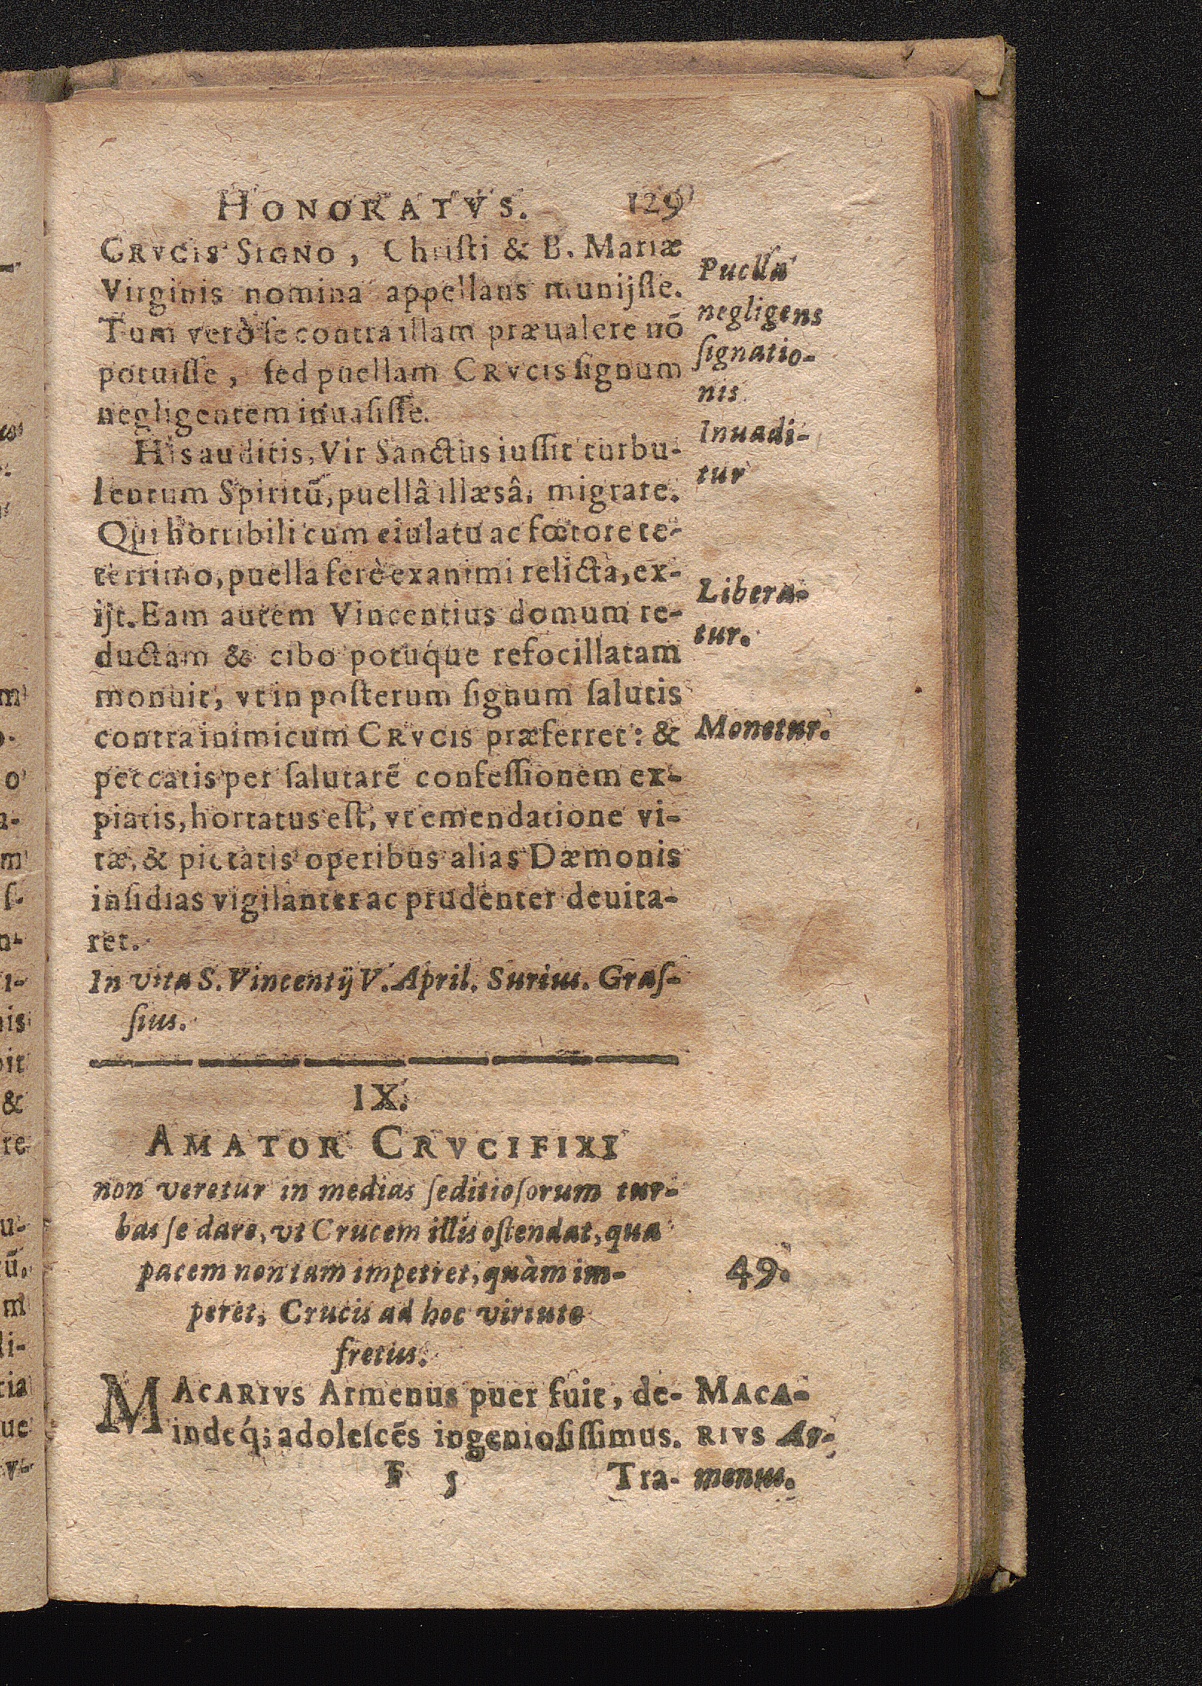 HONORATVS. 129
CRVCIS SIGNO, Christi & B. Mariæ
Virginis nomina appellans munijsse.
Tum verò se contra illam præualere nō
potuisse, sed puellam CRVCIS signum
negligentem inuasisse.
Puella
negligens
signatio-
nis
Inuadi-
tur
His auditis, Vir Sanctus iussit turbu-
lentum Spiritū, puellâ illæsâ, migrare.
Qui horribili cum eiulatu ac fœtore te-
terrimo, puella ferè exanimi relicta, ex-
ijt. Eam autem Vincentius domum re-
ductam & cibo potuq́ue refocillatam
monuit, vt in posterum signum salutis
contra inimicum CRVCIS præferret: &
peccatis per salutarē confessionem ex-
piatis, hortatus est, vt emendatione vi-
tæ, & pietatis operibus alias Dæmonis
insidias vigilanter ac prudenter deuita-
ret.
Libera-
tur.
Monetur.
In vita S. Vincentij V. April. Surius. Gras-
sius.
IX.
AMATOR CRVCIFIXI
non veretur in medias seditiosorum tur-
bas se dare, vt Crucem illis ostendat, qua
pacem non tam impetret, quàm im-
peret, Crucis ad hoc virtute
fretus.
49.
MACARIVS Armenus puer fuit, de-
indeq́; adolescēs ingeniosissimus.
MACA-
RIVS Ar-
menus.
F 5 Tra-